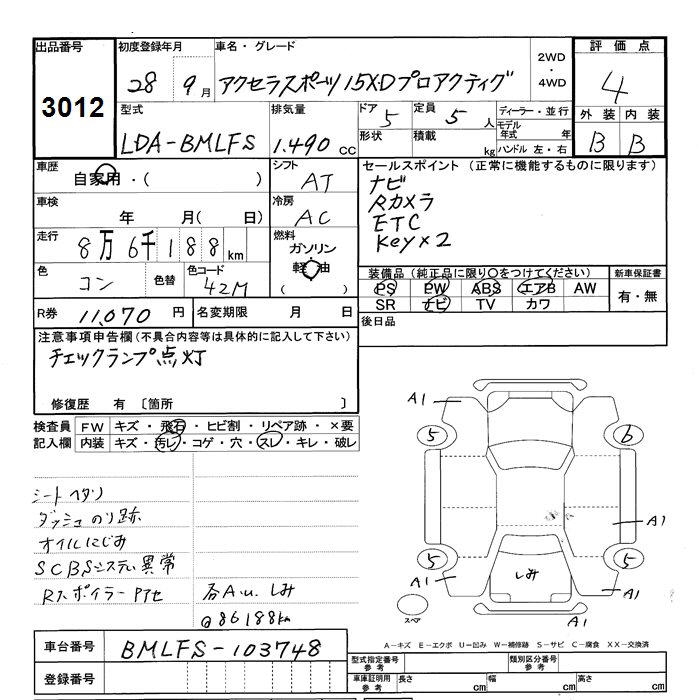 出品番号
3012
初度登録年月
28 9月
車名・グレード
アクセラスポーツ 15XDプロアクティヴ
2WD
・
4WD
評価点
4
外装 内装
B B
型式
LDA-BMLFS
排気量
1.490 CC
ドア
5
形状
定員
5人
積載
kg
ディーラー・並行
モデル
年式 年
ハンドル 左・右
車歴
自家用・( )
シフト
AT
セールスポイント (正常に機能するものに限ります)
ナビ
Rカメラ
ETC
Key×2
車検
年 月( 日)
冷房
AC
走行
8万6千188km
燃料
ガソリン
軽油
( )
色
コン
色替
色コード
42M
装備品(純正品に限り〇をつけてください)
PS PW ABS エアB AW
SR ナビ TV カワ
新車保証書
有・無
R券 11,070円
名変期限 月 日
後日品
注意事項申告欄(不具合内容等は具体的に記入して下さい)
チェックランプ点灯
修復歴 有 〔箇所 〕
検査員
記入欄
FW キズ・飛石・ヒビ割・リペア跡・×要
内装 キズ・汚レ・コゲ・穴・スレ・キレ・破レ
シートヘタリ
ダッシュのり跡
オイルにじみ
SCBSシステム異常
Rスポイラー P7セ
各A.u.しみ
@86188km
A1
5
6
A1
5
5
A1
A1
A1
しみ
スペア
A-キズ E-エクボ U-凹み W-補修跡 S-サビ C-腐食 XX-交換済
車台番号 BMLFS-103748
登録番号
型式指定番号
参考
類別区分番号
参考
車庫証明用
参考
長さ cm
幅 cm
高さ cm